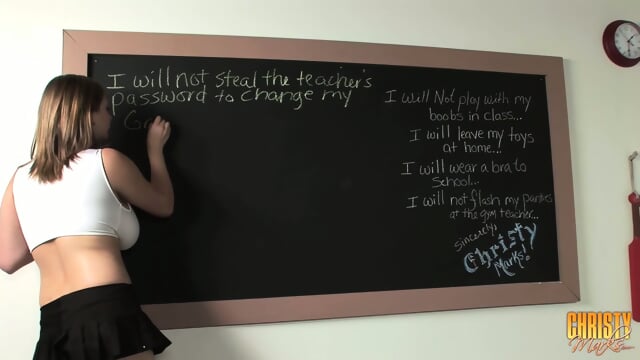 I will not steal the teacher's
password to change my
Ga
I will Not play with my
boobs in class...
I will leave my toys
at home...
I will wear a bra to
school...
I will not flash my panties
at the gym teacher...
sincerely,
Christy
Marks!
CHRISTY
Marks.com